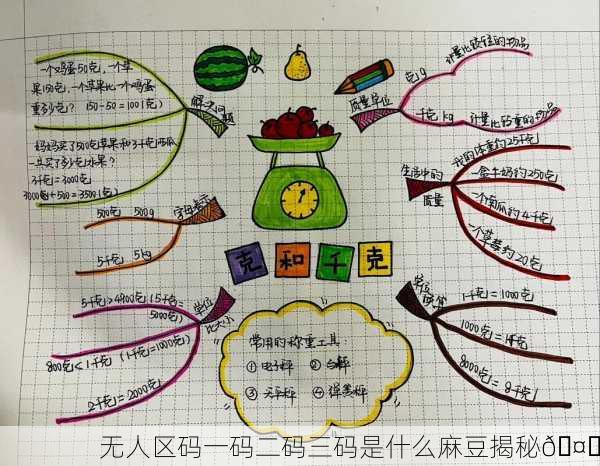 一个鸡蛋50克，一个苹
果150克，一个苹果比一个鸡蛋
重多少克？ 150-50=100(克)
解决问题
妈妈买了500克苹果和3千克西瓜
一共买了多少克水果？
3千克=3000克
3000克+500=3500(克)
500克 500g
字母表示
5千克 5kg
5千克>4900克(5千克=
5000克)
单位
比大小
800克<1千克 (1千克=1000克)
2千克=2000克
克和千克
常用的称重工具
①电子秤 ②台秤
③天平秤 ④弹簧秤
质量单位
克g
计量比较轻的物品
千克kg
计量比较重的物品
生活中的
质量
我的体重约25千克
一盒牛奶约250克
一个南瓜约4千克
一个草莓约20克
单位
1千克=1000克
1000克=1千克
8000克=8千克
无人区码一码二码三码是什么麻豆揭秘